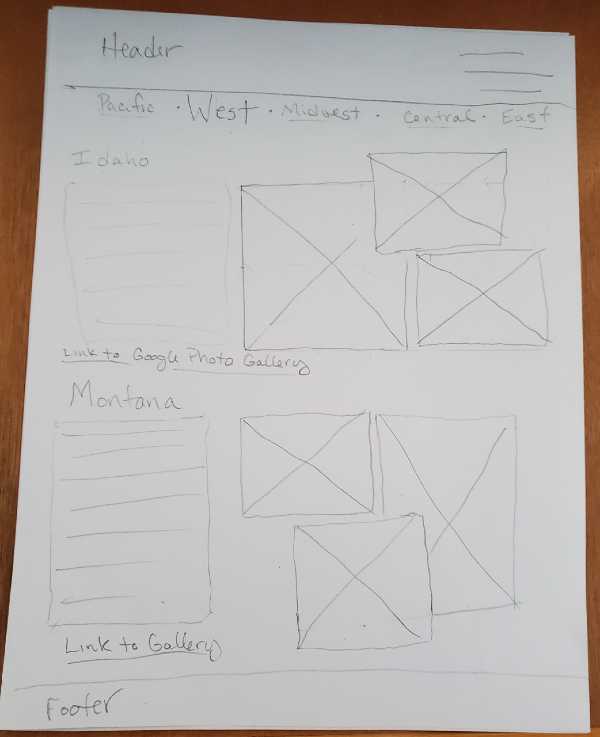 Header
Pacific · West · Midwest · Central · East
Idaho
Link to Google Photo Gallery
Montana
Link to Gallery
Footer